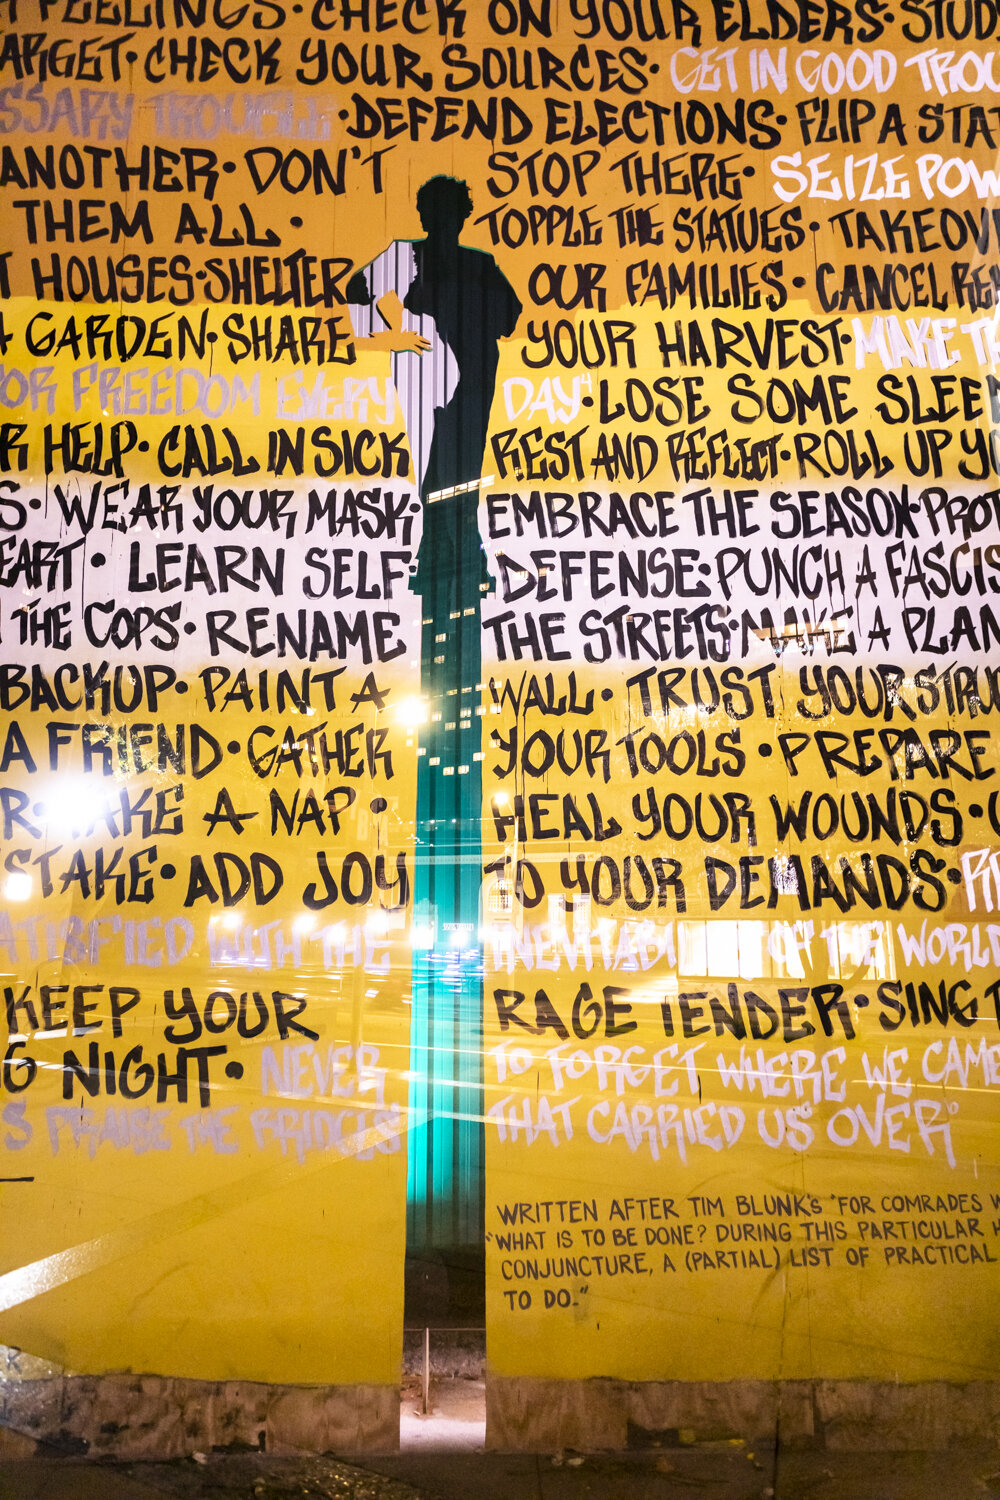 FEELINGS • CHECK ON YOUR ELDERS •
ARGET • CHECK YOUR SOURCES • GET IN GOOD
SSARY TROUBLE • DEFEND ELECTIONS • FLIP A
ANOTHER • DON'T STOP THERE • SEIZE
THEM ALL • TOPPLE THE STATUES •
HOUSES • SHELTER OUR FAMILIES • CANCEL
GARDEN • SHARE YOUR HARVEST • MAKE
FOR FREEDOM EVERY DAY⁴ • LOSE SOME SLEE
R HELP • CALL IN SICK REST AND REFLECT • ROLL UP
S • WEAR YOUR MASK • EMBRACE THE SEASON •
EART • LEARN SELF- DEFENSE • PUNCH A FASCIS
THE COPS • RENAME THE STREETS • MAKE A PLAN
BACKUP • PAINT A WALL • TRUST YOUR
A FRIEND • GATHER YOUR TOOLS • PREPARE
R • TAKE A NAP • HEAL YOUR WOUNDS •
STAKE • ADD JOY TO YOUR DEMANDS •
WITH THE OF THE WORLD
KEEP YOUR RAGE TENDER • SING
G NIGHT • NEVER TO FORGET WHERE WE CAME
S PRAISE THE BRIDGES THAT CARRIED US OVER
WRITTEN AFTER TIM BLUNK'S "FOR COMRADES
"WHAT IS TO BE DONE? DURING THIS PARTICULAR
CONJUNCTURE, A (PARTIAL) LIST OF PRACTICAL
TO DO."